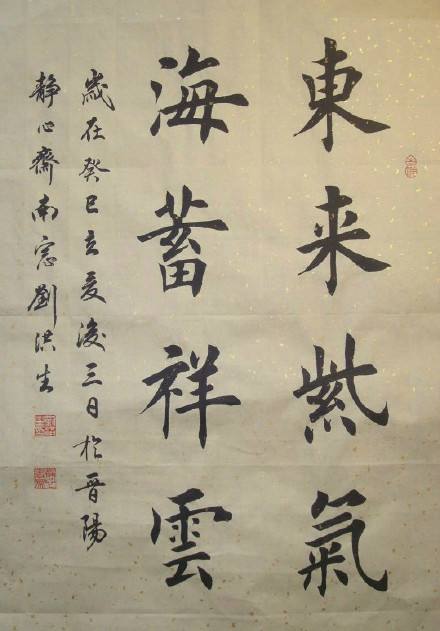 東来紫氣
海蓄祥雲
歲在癸巳立夏後三日於晋陽
静心齋南窓劉洪生